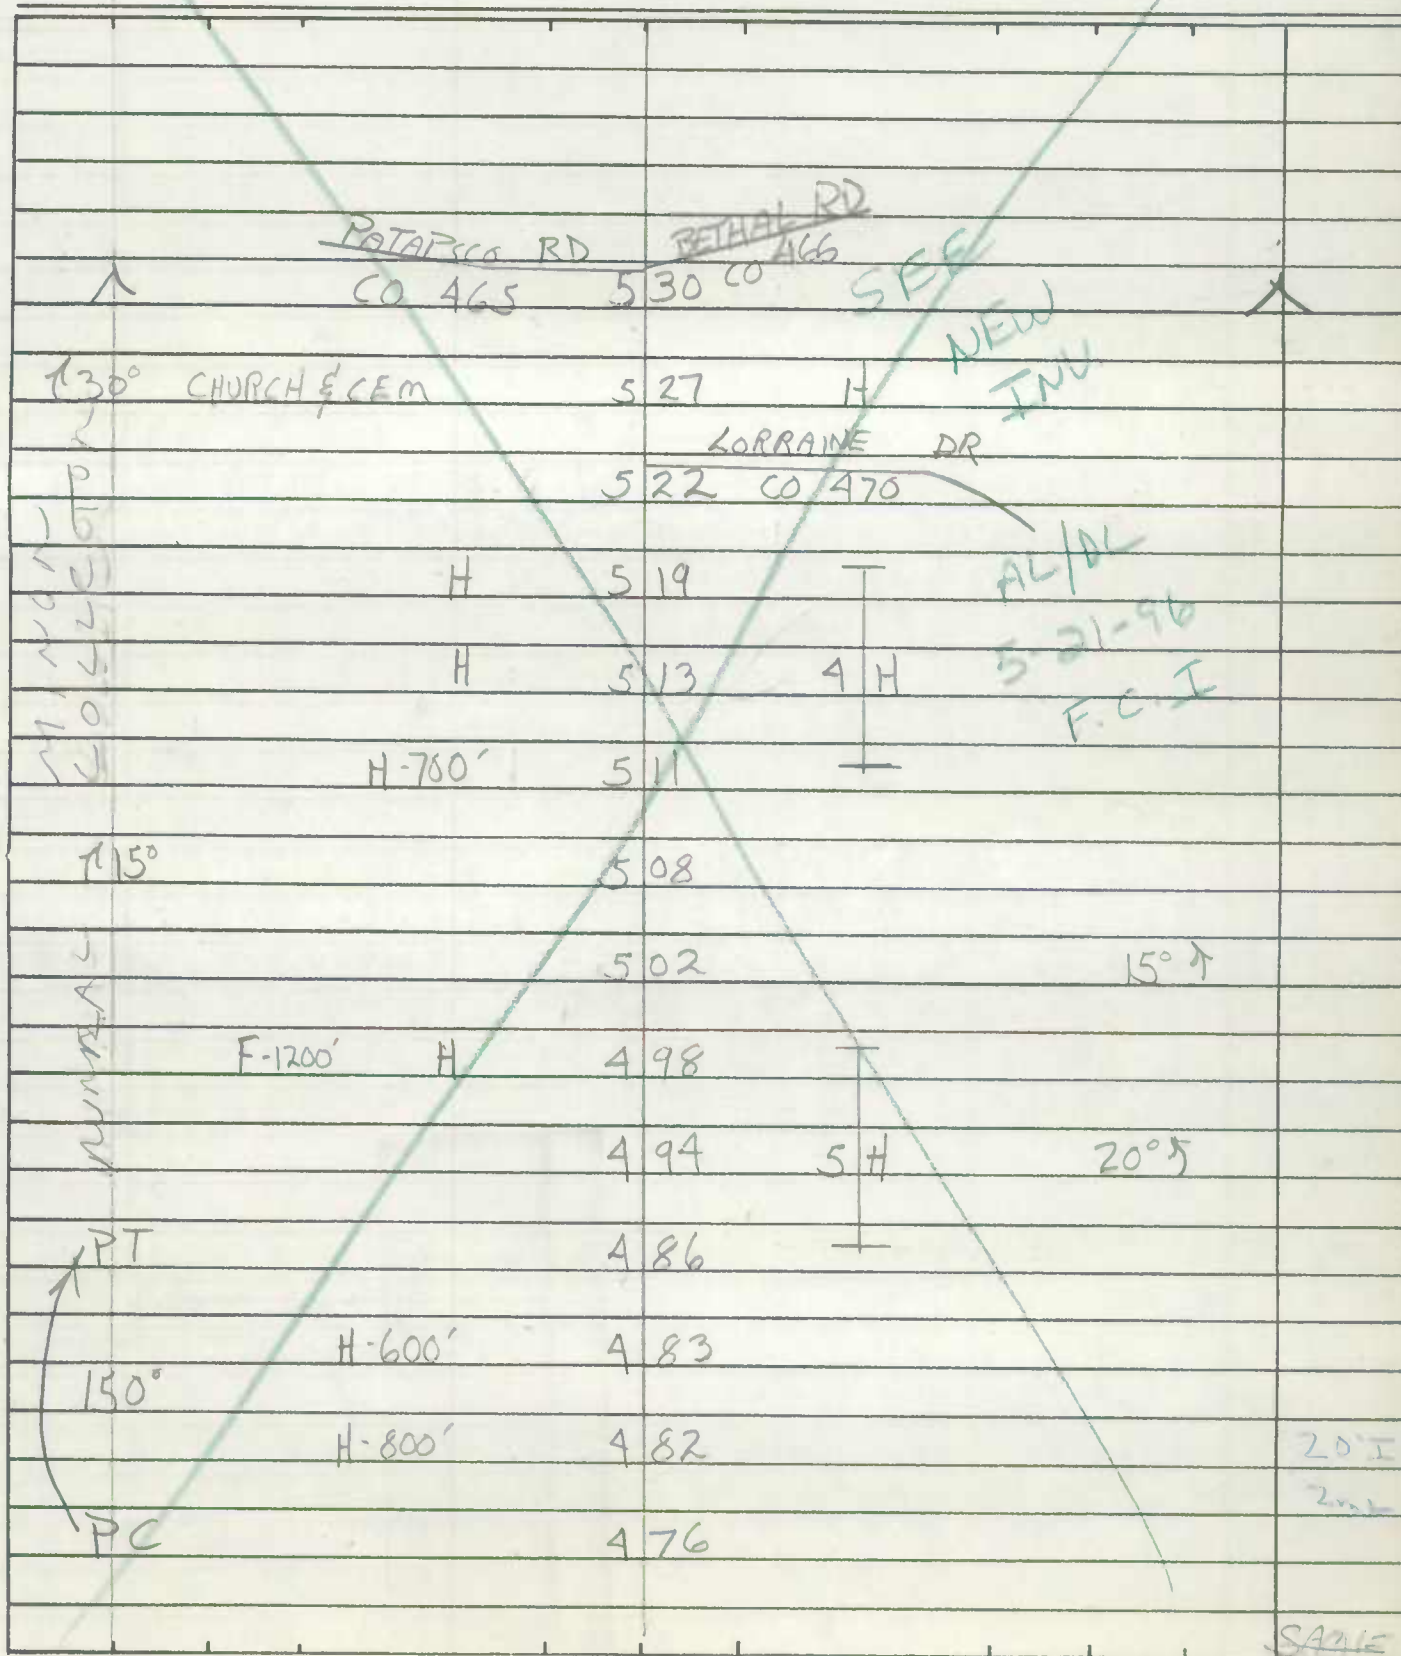 PATAPSCO RD BETHAL RD
CO 465 5 30 CO 466
SEE
NEW
INV.
30° CHURCH & CEM 5 27 H
LORRAINE DR
5 22 CO 470
AL/DL
5-21-96
F.C.I
H 5 19
H 5 13 4 H
H-700' 5 11
15° 5 08
5 02 15°
F-1200' H 4 98
4 94 5 H 20°
PT 4 86
H-600' 4 83
150°
H-800' 4 82
PC 4 76
RURAL
MINOR
COLLECTOR
20' I
SAME